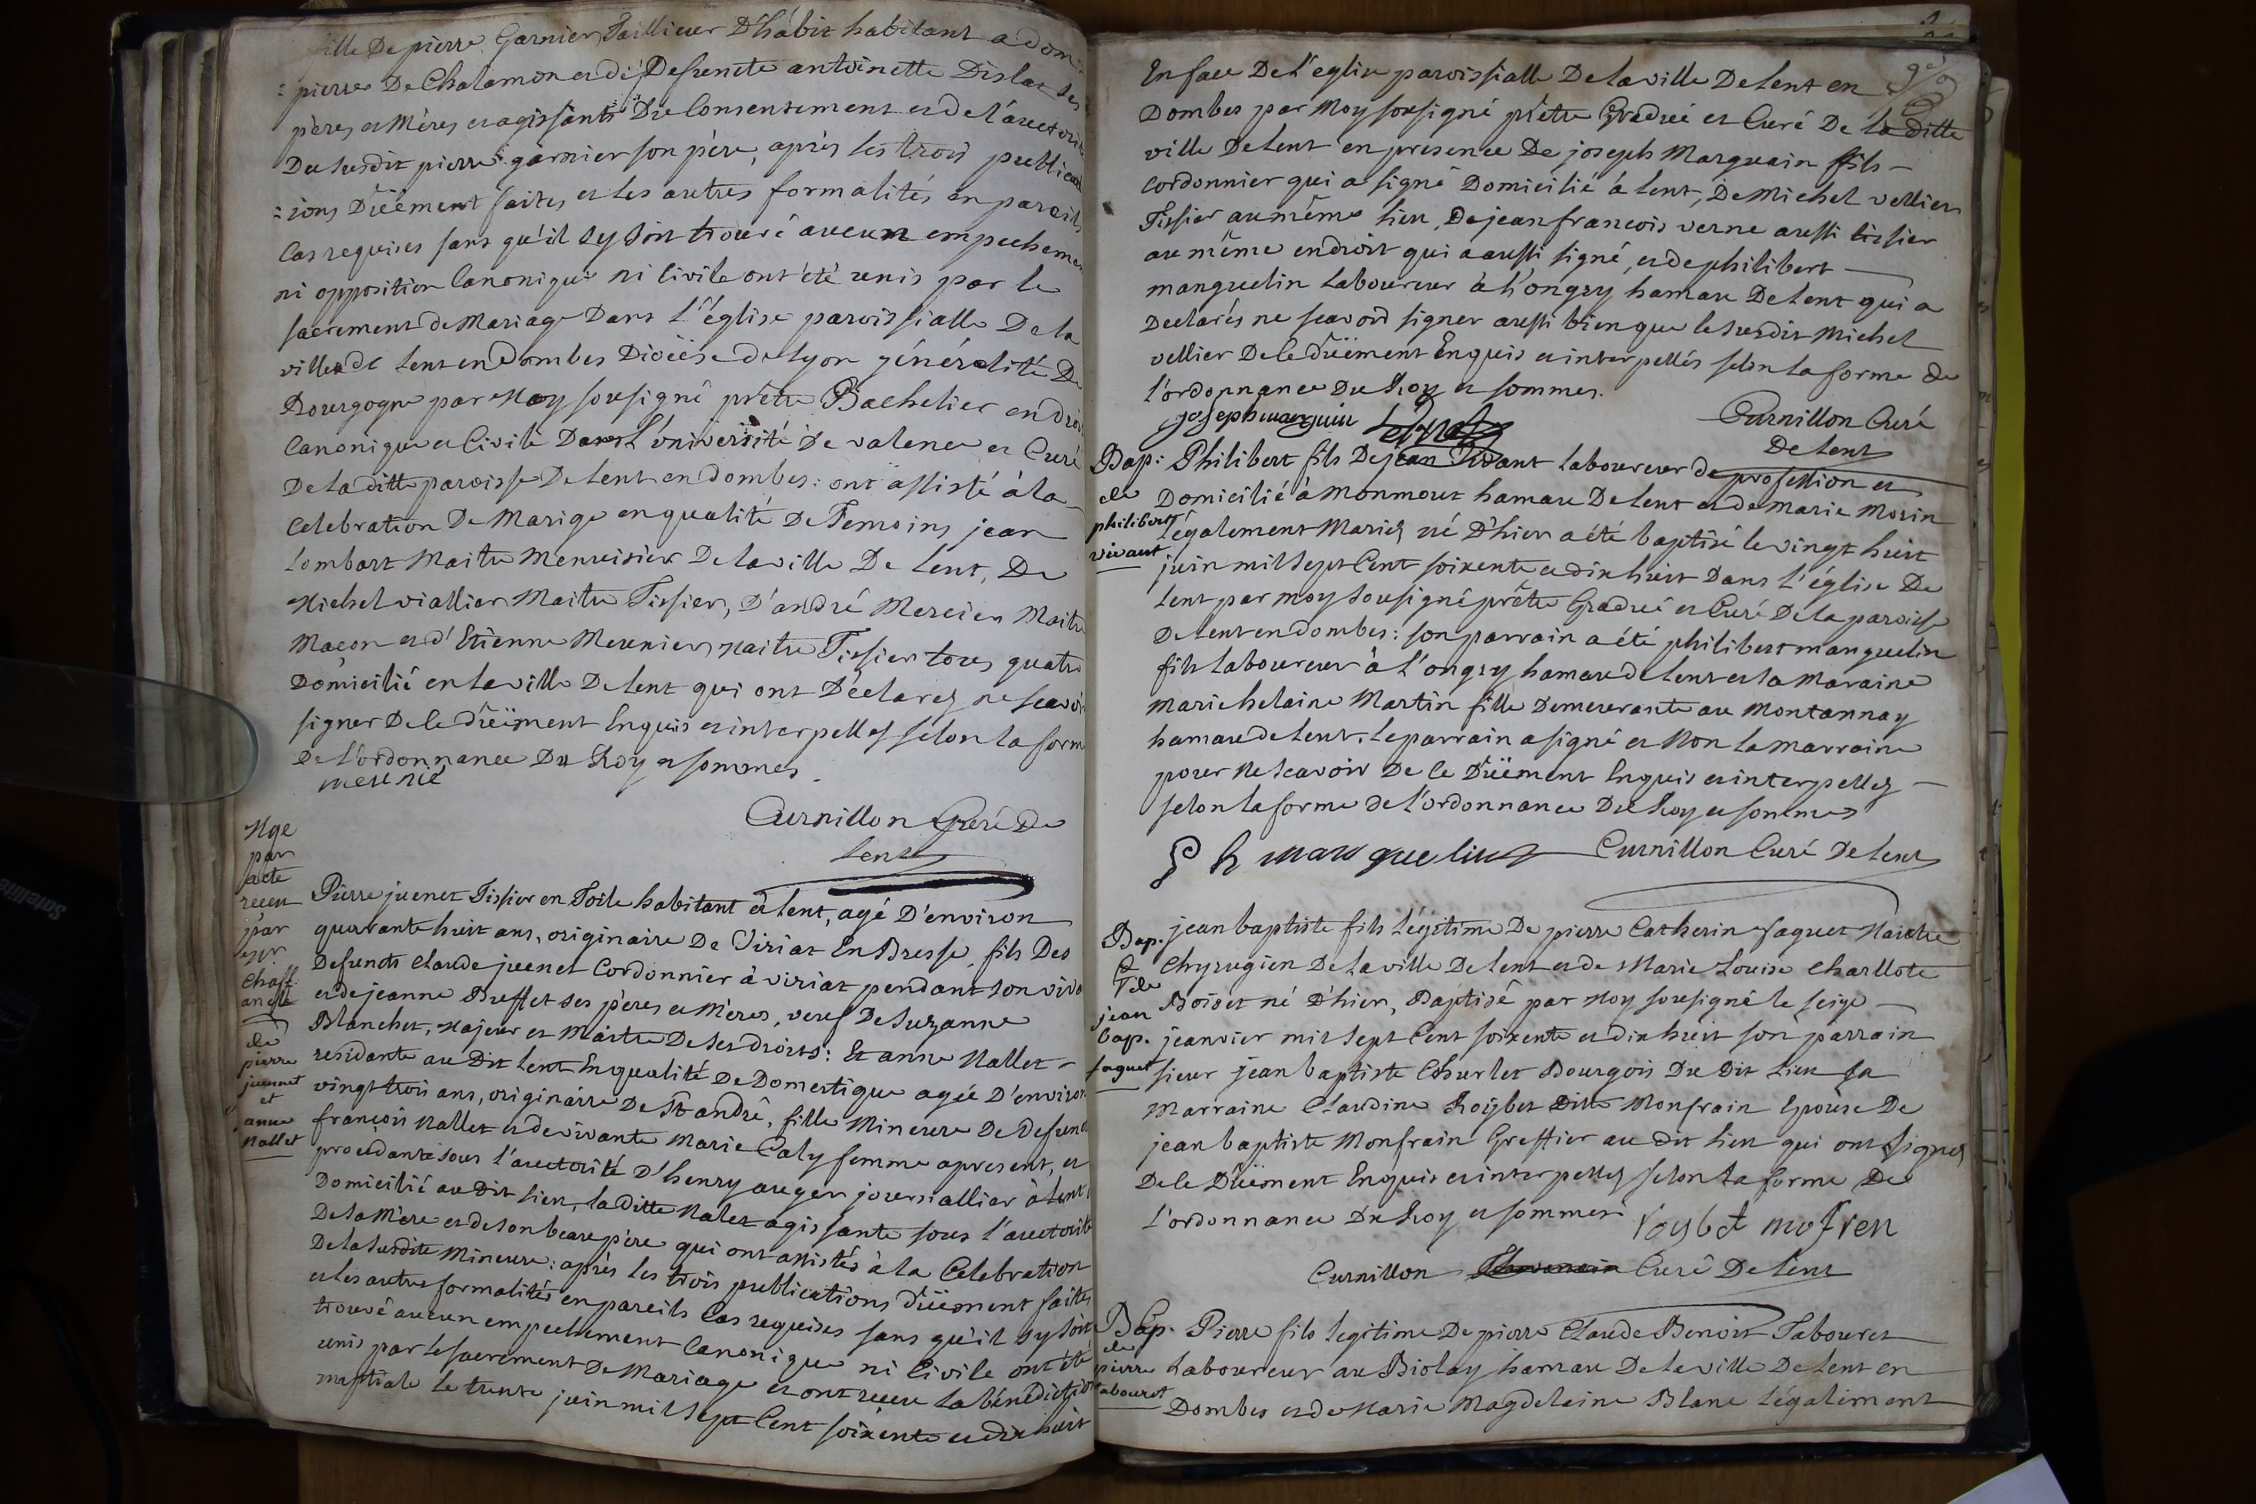 fille De pierre Garnier Taillieur D'habit habitant a dom
: pierre De Chalamon et de Defuncte antoinette Dislat ses
pères et Mères et agissante Du Consentement et de l'auctorité
Du susdit pierre garnier son père, après les trois publicat
: ions Düement faites et les autres formalités en pareils
Cas requises sans qu'il sy soit trouvé aucun empechemen
ni opposition Canonique ni Civile ont été unis par le
sacrement de Mariage Dans L'église paroissialle De la
ville de Lent en Dombes Diocèse de Lyon généralité De
Bourgogne par Moy sousigné prêtre Bachelier en droit
Canonique et Civile Dans L'université De valence et Curé
De la ditte paroisse De Lent en dombes : ont assisté à la
Celebration De Marige en qualité De Temoins jean
Lombart Maitre Menuisier De la ville De Lent, De
Michel viallier Maitre Tissier, D'andré Mercier Maitre
Macon et d'Etienne Meunier Maitre Tissier tous quatre
Domicilié en la ville De Lent qui ont Déclarez ne scavoi
signer De le Düement Enquis et interpellés selon la form
De L'ordonnance Du Roy et sommes.
meunié
Curnillon Curé De
Lent
Mge
par
acte
receu
par
chaff
anel
de
pierre
juenet
et
anne
Nallet
Pierre juenet Tissier en Toile habitant à Lent, agé D'environ
quarante huit ans, originaire De Viriat En Bresse, fils Des
Defuncts Claude juenet Cordonnier à viriat pendant son viva
et de jeanne Breffet ses pères et Mères, veuf De Suzanne
Blanchet, Majeur et Maitre De ses droits : Et anne Nallet
residante au Dit Lent En qualité De Domestique agée D'environ
vingt trois ans, originairre De St andré, fille Mineure De Defunct
françois Nallet et de vivante Marie Caly femme apresent, et
procedante sous l'auctorité D'henry auger journallier à Lent
Domicilié au Dit Lieu, la ditte Nalet agissante sous l'auctorité
De sa Mère et de son beau père qui ont assistés à la Celebration
De la susdite Mineure : après les trois publications düement faites
et les autres formalités en pareils Cas requises sans qu'il sy soit
trouvé aucun empechement Canonique ni Civile ont été
unis par le sacrement De Mariage et ont receu La bénédiction
nuptiale le trente juin mil sept Cent soixente et dix huit
En face De L'eglise paroissialle De la ville De Lent en
Dombes par Moy sousigné prêtre Gradué et Curé De la ditte
ville De Lent en presence De joseph Marguain fils
Cordonnier qui a signé Domicilié à Lent, De Michel vellier
Tissier au même lieu, De jean francois verne aussi tissier
au même endroit qui a aussi signé, et de philibert
manguelin Laboureur à L'ongry hamau De Lent qui a
Declarés ne scavoir signer aussi bien que le susdit Michel
vellier De le düement Enquis et interpellés selon la forme de
l'ordonnance Du Roy et sommes.
joseph marguin
Curnillon Curé
De Lent
Bap:
de
philibert
vivant
Philibert fils De jean Vivant Laboureur de profession et
Domicilié à Monmout hamau De Lent et de Marie Morin
Légalement Mariez né D'hier a été baptisé le vingt huit
juin mil sept Cent soixente et dix huit Dans L'église De
Lent par moy sousigné prêtre Gradué et Curé De la paroisse
De Lent en dombes : son parrain a été philibert manguelin
fils Laboureur à L'ongry hamau de Lent et la Maraine
Marie helaine Martin fille Demeurante au Montannay
hamau de Lent. Le parrain a signé et Non la marraine
pour Ne scavoir De le Düement Enquis et interpellez
selon la forme de l'ordonnance Du Roy et sommes
P h manguelin
Curnillon Curé De Lent
Bap.
de
jean
bap.
faguet
jean baptiste fils Légitime De pierre Catherin faguet Maitre
Chyrugien De la ville De Lent et de Marie Louise Charllote
Boisset né D'hier, Baptisé par Moy sousigné le seize
jeanvier mil sept Cent soixente et dix huit son parrain
sieur jean baptiste Churlet Bourgois Du Dit Lieu sa
Marraine Claudine Roÿbet Ditte Monfrain Epouse De
jean baptiste Monfrain Greffier au dit lieu qui ont signez
De le Düement Enquis et interpellez selon la forme De
L'ordonnance Du Roy et sommes
roybet mofren
Curnillon Curé De Lent
Bap.
de
pierre
tabouret
Pierre fils legitime De pierre Claude Benoit Tabouret
Laboureur au Biolay hamau De la ville De Lent en
Dombes et de Marie Magdelaine Blanc Légalement